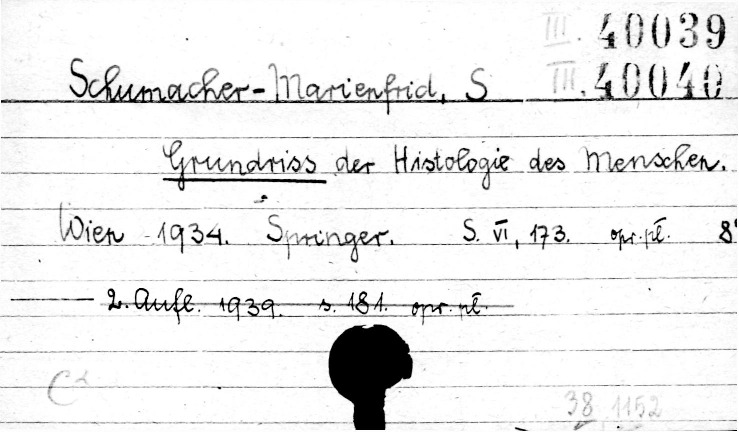 III. 40039
Schumacher-Marienfrid, S III. 40040
Grundriss der Histologie des Menschen.
Wien 1934. Springer. S. VI, 173. opr. pł. 8°
— 2. Aufl. 1939. s. 181. opr. pł.
38 1152